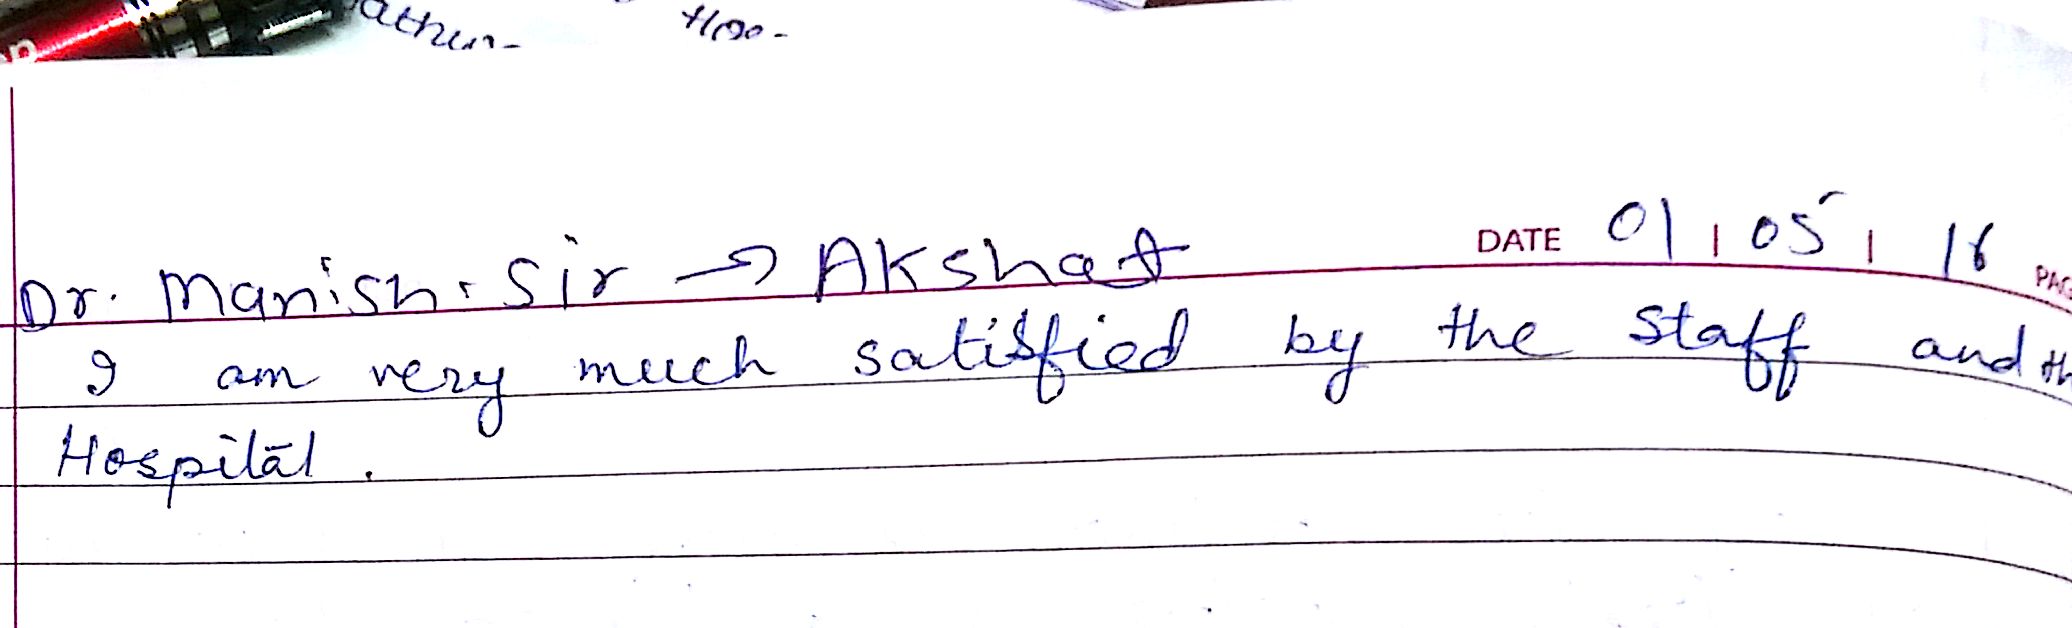 DATE 01 | 05 | 16
Dr. Manish. Sir → Akshat
I am very much satisfied by the staff and th
Hospital.